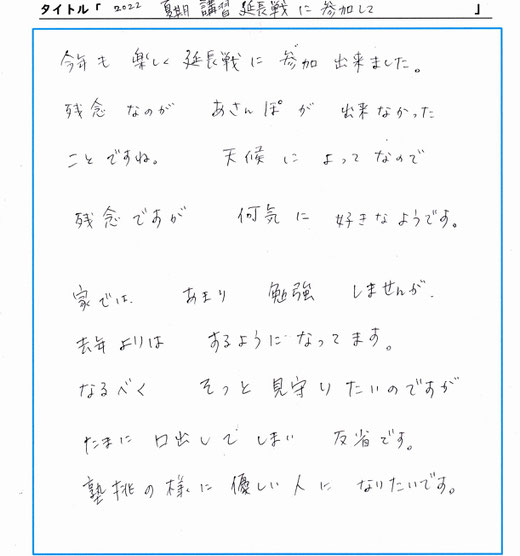 タイトル「 2022 夏期 講習 延長戦 に 参加して 」
今年も 楽しく 延長戦に 参加 出来ました。
残念なのが あさんぽが 出来なかった
ことですね。 天候に よってなので
残念ですが 何気に 好きなようです。
家では、 あまり 勉強 しませんが、
去年よりは するようになってます。
なるべく そっと 見守りたいのですが
たまに 口出しで しまい 反省です。
塾挑の様に 優しい人に なりたいです。